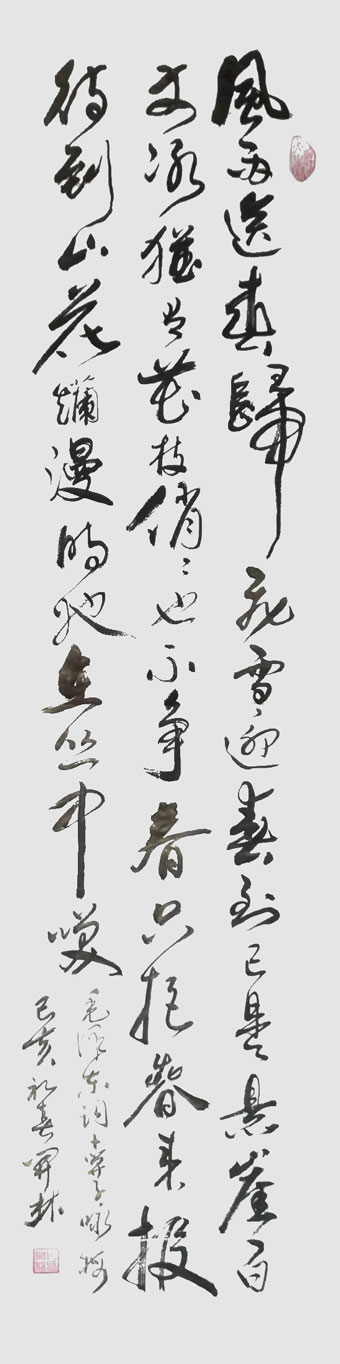 風雨送春歸飛雪迎春到已是懸崖百
丈冰猶有花枝俏〻也不爭春只把春來報
待到山花爛漫時她在丛中咲
毛澤東詞卜算子咏梅
己亥初春